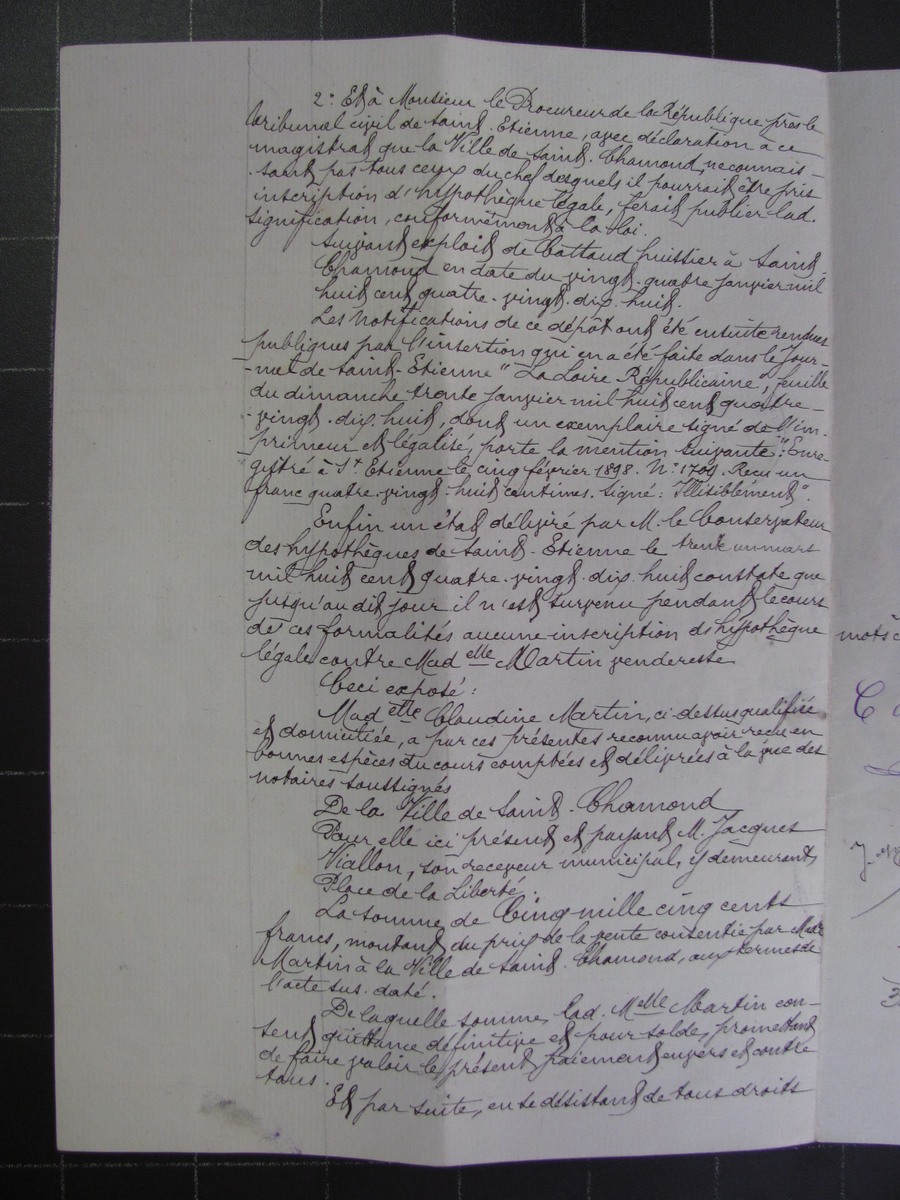 2° Et à Monsieur le Procureur de la République près le
tribunal civil de Saint-Etienne, avec déclaration à ce
magistrat que la Ville de Saint-Chamond, ne connais-
-sant pas tous ceux du chef desquels il pourrait être pris
inscription d'hypothèque légale, ferait publier lad.
signification, conformément à la loi.
Suivant exploit de Cattaud huissier à Saint-
Chamond en date du vingt-quatre janvier mil
huit cent quatre-vingt-dix-huit.
Les notifications de ce dépôt ont été ensuite rendues
publiques par l'insertion qui en a été faite dans le Jour-
-nal de Saint-Etienne "La Loire Républicaine", feuille
du dimanche trente janvier mil huit cent quatre-
-vingt-dix-huit, dont un exemplaire signé de l'im-
primeur et légalisé, porte la mention suivante: "Enre-
gistré à St Etienne le cinq février 1898. N° 1709. Reçu un
franc quatre-vingt-huit centimes. Signé: Illisiblement".
Enfin un état délivré par M. le Conservateur
des hypothèques de Saint-Etienne le trente un mars
mil huit cent quatre-vingt-dix-huit constate que
jusqu'au dit jour il n'est survenu pendant le cours
de ces formalités aucune inscription d'hypothèque
légale contre Mad elle Martin venderesse
Ceci exposé:
Mad elle Claudine Martin, ci-dessus qualifiée
et domiciliée, a par ces présentes reconnu avoir reçu en
bonnes espèces du cours comptées et délivrées à la vue des
notaires soussignés
De la Ville de Saint-Chamond
Pour elle ici présent et payant M. Jacques
Viallon, son receveur municipal, y demeurant,
Place de la Liberté.
La somme de Cinq mille cinq cents
francs, montant du prix de la vente consentie par Melle
Martin à la Ville de Saint-Chamond, aux termes de
l'acte sus-daté.
De laquelle somme, lad. Melle Martin con-
sent quittance définitive et pour solde, promettant
de faire valoir le présent paiement envers et contre
tous.
Et par suite, en se désistant de tous droits
mots